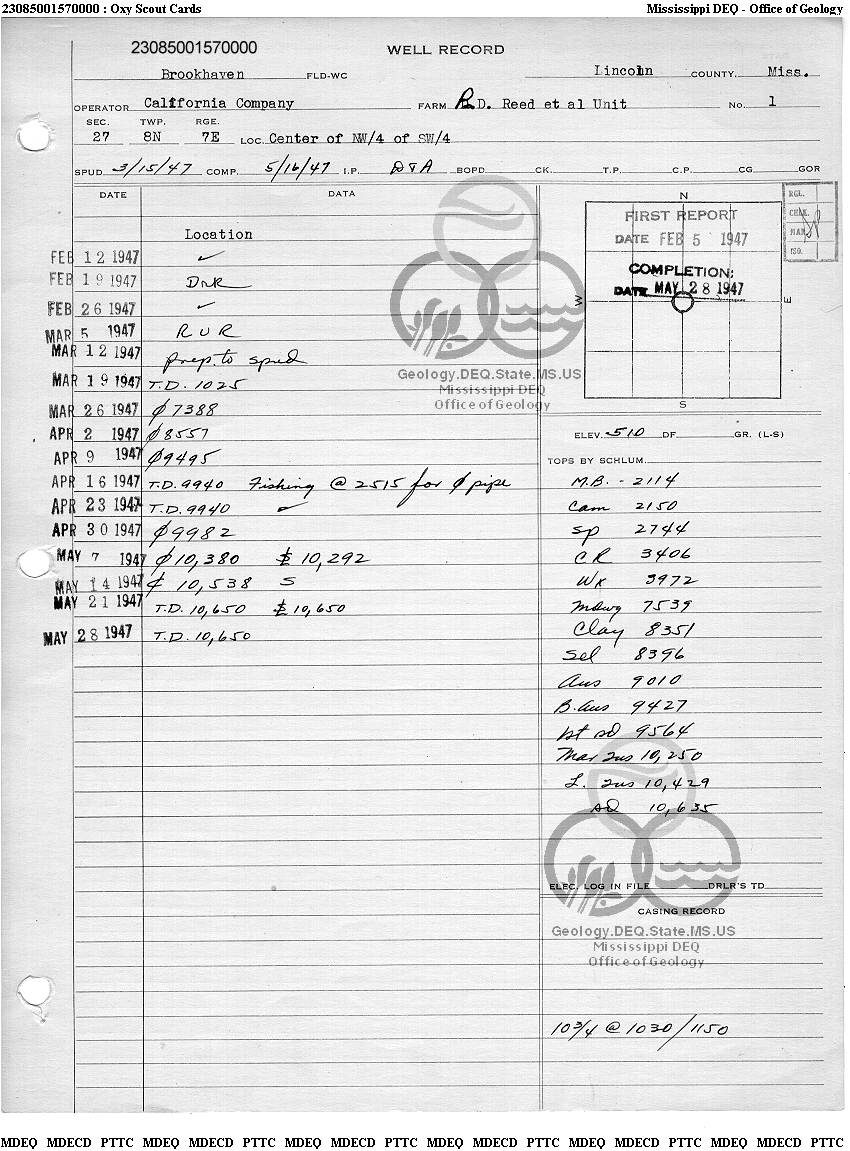 23085001570000 : Oxy Scout Cards Mississippi DEQ - Office of Geology
23085001570000
WELL RECORD
Brookhaven FLD-WC Lincoln COUNTY, Miss.
OPERATOR California Company FARM R.D. Reed et al Unit No. 1
SEC. TWP. RGE.
27 8N 7E LOC. Center of NW/4 of SW/4
SPUD 3/15/47 COMP. 5/16/47 I.P. D&A BOPD CK. T.P. C.P. CG GOR
DATE DATA
Location
FEB 12 1947 ✓
FEB 19 1947 DNR
FEB 26 1947 ✓
MAR 5 1947 RUR
MAR 12 1947 prep. to spud
MAR 19 1947 T.D. 1025
MAR 26 1947 ϕ 7388
APR 2 1947 ϕ 8557
APR 9 1947 ϕ 9495
APR 16 1947 T.D. 9940 Fishing @ 2515 for ϕ pipe
APR 23 1947 T.D. 9940 ✓
APR 30 1947 ϕ 9982
MAY 7 1947 ϕ 10,380 10,292
MAY 14 1947 10,538 S
MAY 21 1947 T.D. 10,650 10,650
MAY 28 1947 T.D. 10,650
N
FIRST REPORT
DATE FEB 5 1947
COMPLETION:
DATE MAY 28 1947
W
E
S
RGL.
CHKK.
MAP
ISO.
ELEV. 510 DF GR. (L-S)
TOPS BY SCHLUM.
M.B. - 2114
Cam 2150
Sp 2744
CR 3406
WX 3972
Mdwg 7539
Clay 8351
Sel 8396
Aus 9010
B. Aus 9427
9564
Mar Tus 10,250
L. Tus 10,429
SD 10,635
ELEC. LOG IN FILE DRLR'S TD
CASING RECORD
10 3/4 @ 1030/1150
Geology.DEQ.State.MS.US
Mississippi DEQ
Office of Geology
Geology.DEQ.State.MS.US
Mississippi DEQ
Office of Geology
MDEQ MDECD PTTC MDEQ MDECD PTTC MDEQ MDECD PTTC MDEQ MDECD PTTC MDEQ MDECD PTTC MDEQ MDECD PTTC